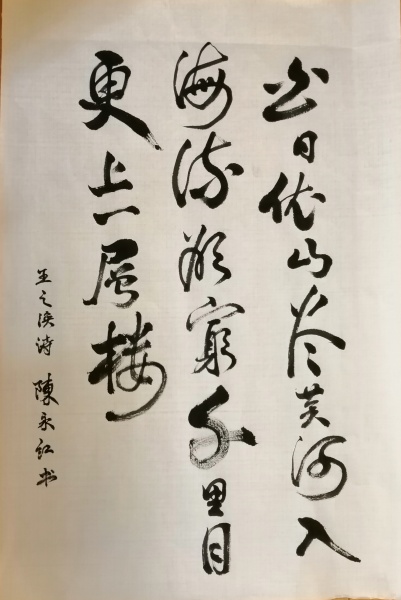 白日依山尽黄河入
海流欲窮千里目
更上一层楼
王之涣诗 陳永红书